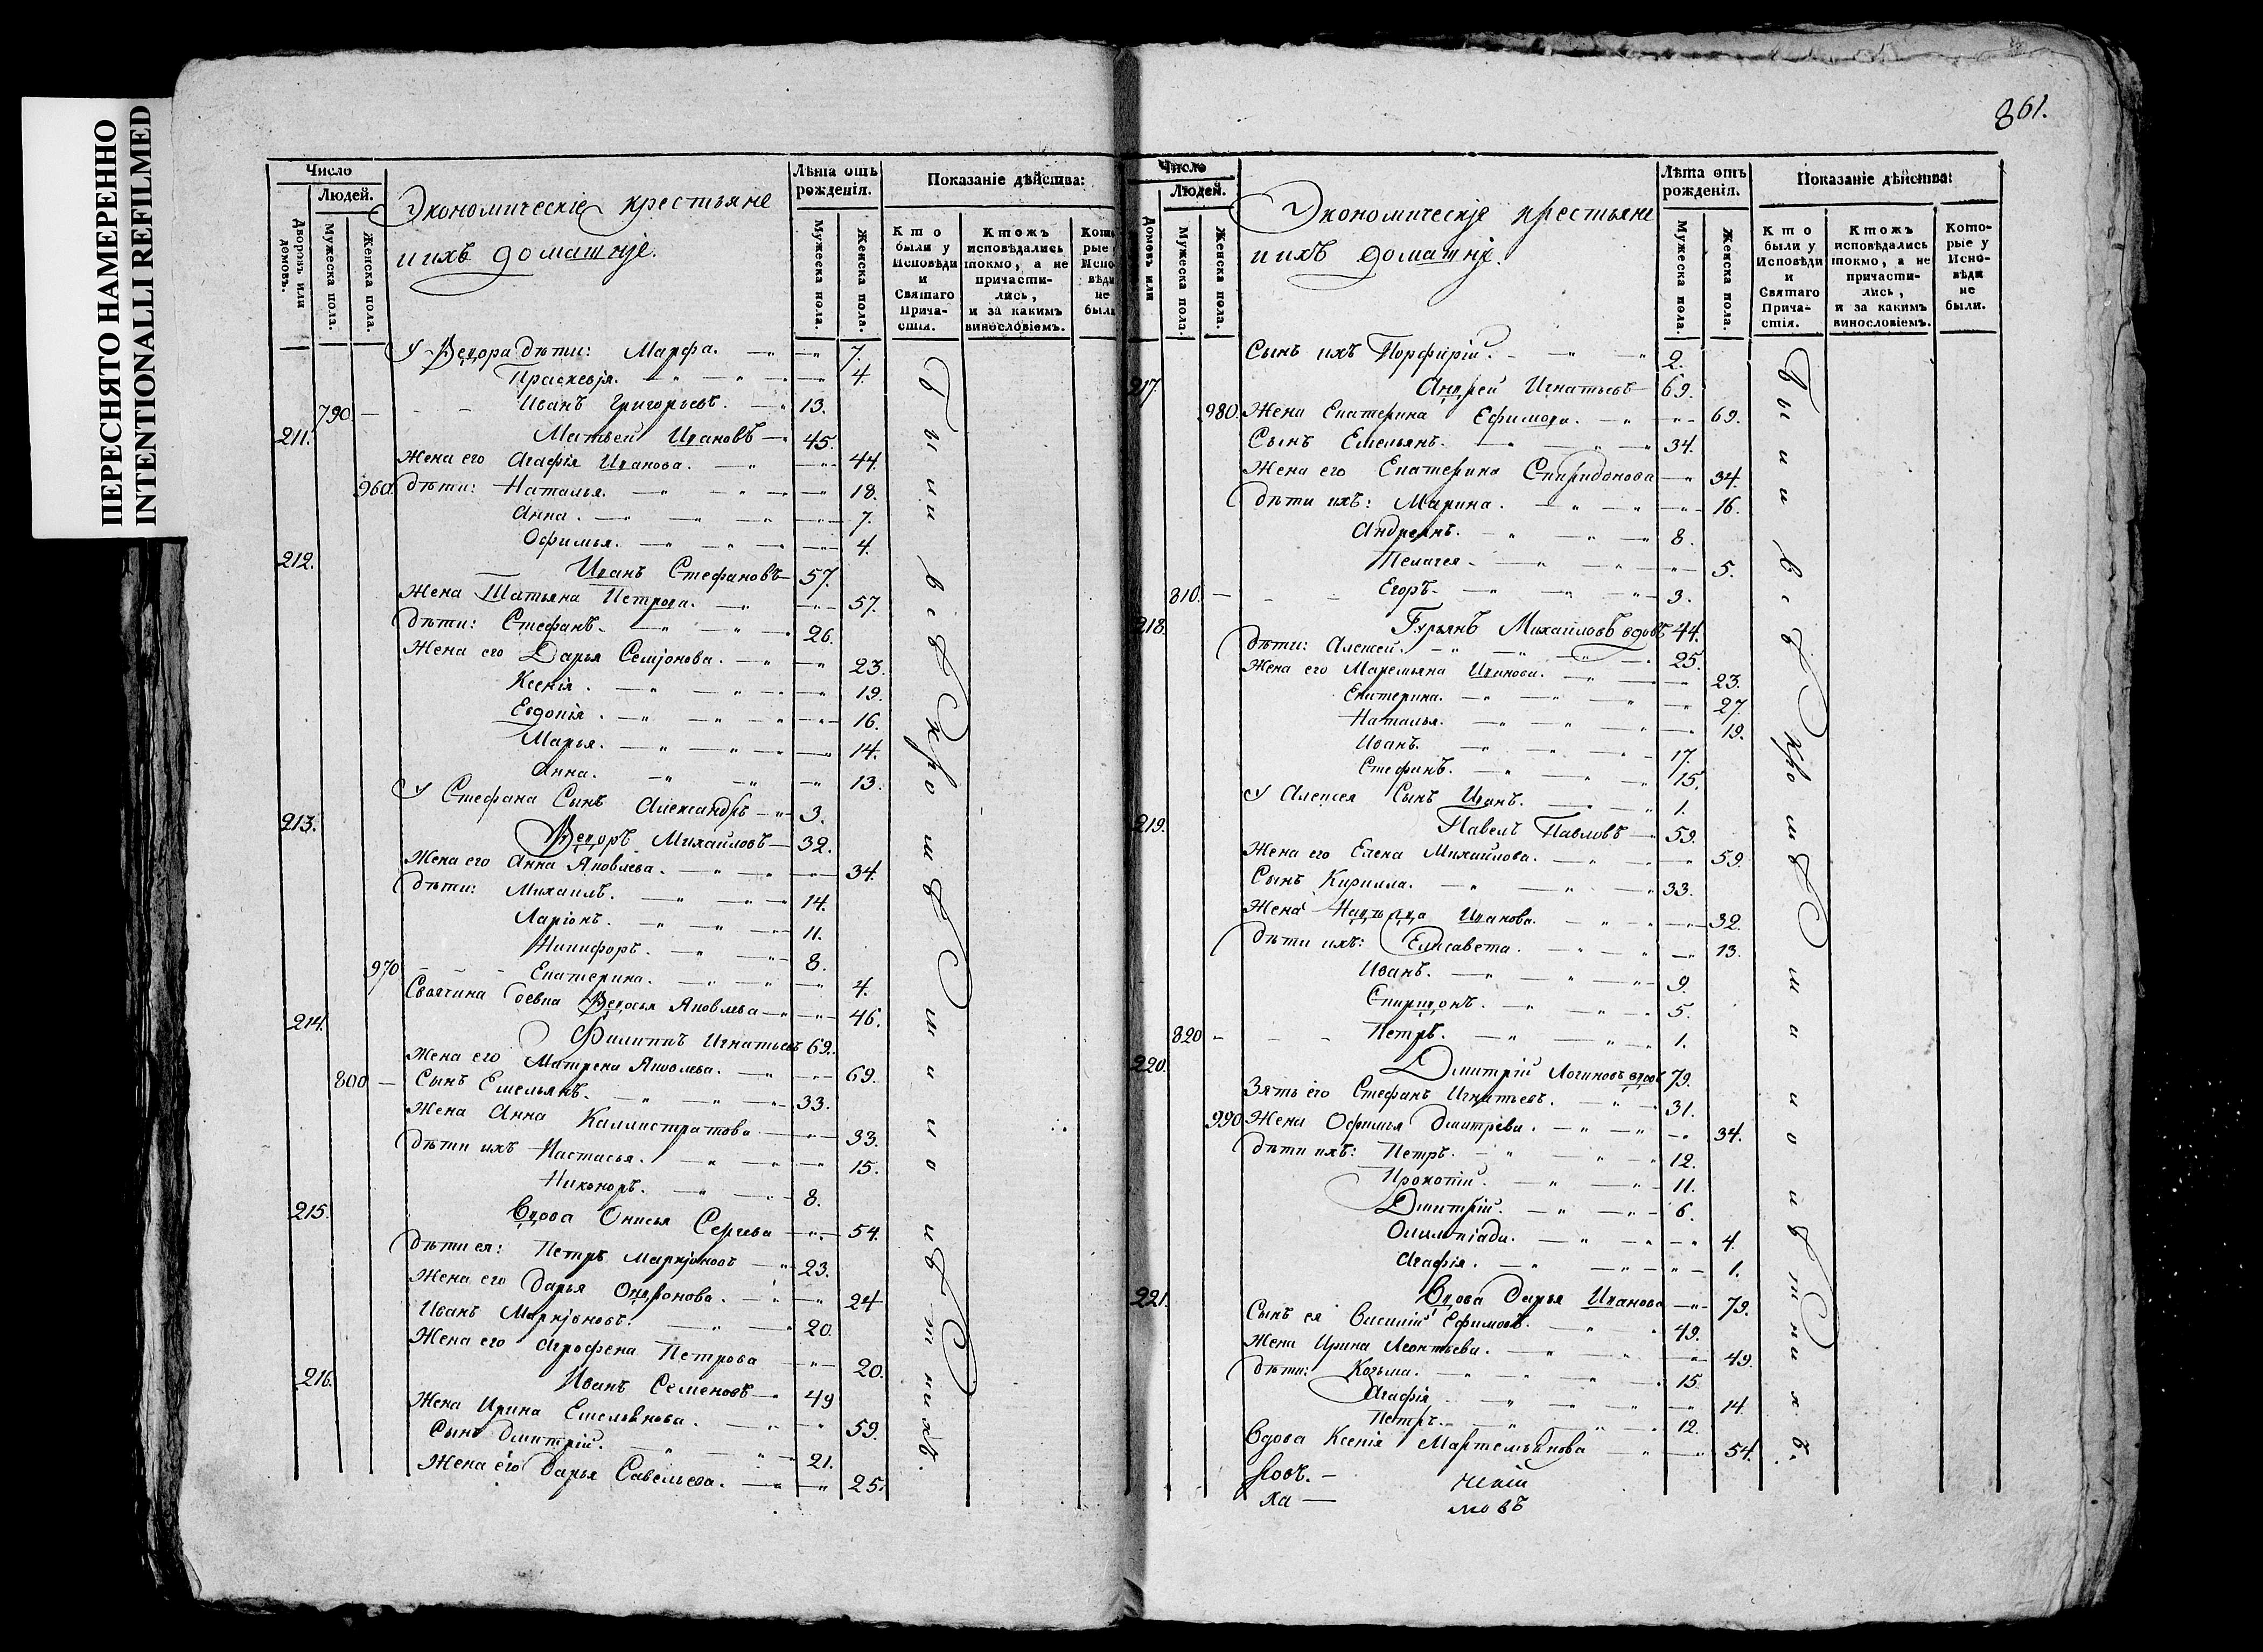 ПЕРЕСНЯТО НАМЕРЕННО
INTENTIONALLI REFILMED
Число
Людей.
Дворовъ или домовъ.
Мужеска пола.
Женска пола.
Экономическіе крестьяне
и ихъ домашніе.
Лѣта отъ рожденія.
Мужеска пола.
Женска пола.
Показаніе дѣйства:
Кто были у Исповѣди и Святаго Прича-стія.
Ктожъ исповѣдались токмо, а не причасти-лись, и за какимъ винословіемъ.
Кото рые Испо вѣди не были
У Ѳедора дѣти: Марфа. 7.
Праскевія. 4.
790. Иванъ Григорьевъ. 13.
211. Матвей Ивановъ 45.
Жена его Агафія Иванова. 44.
960. дѣти: Наталья. 18.
Анна. 7.
Офимья. 4.
212. Иванъ Стефановъ 57.
Жена Татьяна Петрова. 57.
дѣти: Стефанъ. 26.
Жена его Дарья Семіонова. 23.
Ксенія. 19.
Евдокія. 16.
Марья. 14.
Анна. 13.
У Стефана Сынъ Александръ 3.
213. Ѳедоръ Михайловъ 32.
Жена его Анна Яковлева. 34.
дѣти: Михаилъ. 14.
Ларіонъ. 11.
Никифоръ. 8.
970 Екатерина. 4.
Своячина девка Ѳедосья Яковлева 46.
214. Филиппъ Игнатьевъ 69.
Жена его Матрена Яковлева. 69.
800 Сынъ Емельянъ. 33.
Жена Анна Каллистратова 33.
дѣти ихъ Настасья. 15.
Никоноръ. 8.
215. Вдова Онисья Сергева 54.
дѣти ея: Петръ Маркіоновъ 23.
Жена его Дарья Андронова. 24
Иванъ Маркіоновъ. 20.
Жена его Агрофена Петрова 20.
216. Иванъ Семеновъ 49
Жена Ирина Емельянова. 59.
Сынъ Дмитрій. 21.
Жена его Дарья Савельева. 25.
Были всѣ кромѣ малолѣтнихъ.
861.
Число
Людей.
Домовъ или
Мужеска пола.
Женска пола.
Экономическіе крестьяне
и ихъ домашніе.
Лѣта отъ рожденія.
Мужеска пола.
Женска пола.
Показаніе дѣйства:
Кто были у Исповѣди и Святаго Прича-стія.
Ктожъ исповѣдались токмо, а не причасти-лись, и за какимъ винословіемъ.
Кото-рые у Испо-вѣди не были.
Сынъ ихъ Порфирій. 2.
217. Андрей Игнатьевъ 69.
980. Жена Екатерина Ефимова. 69.
Сынъ Емельянъ. 34.
Жена его Екатерина Спиридонова 34.
дѣти ихъ: Марина. 16.
Андреянъ. 8.
Пелагея. 5.
810. Егоръ. 3.
218. Гурьянъ Михайловъ вдовъ 44.
дѣти: Алексей. 25.
Жена его Маремьяна Иванова. 23.
Екатерина. 27.
Наталья. 19.
Иванъ. 17.
Стефанъ. 15.
У Алексея Сынъ Иванъ. 1.
219. Павелъ Павловъ 59.
Жена его Елена Михайлова. 59.
Сынъ Кирилла. 33.
Жена Надежда Иванова. 32.
дѣти ихъ: Елисавета. 13.
Иванъ. 9.
Спиридонъ. 5.
820 Петръ. 1.
220. Дмитрій Логиновъ вдовъ 79.
Зять его Стефанъ Игнатьевъ. 31.
990 Жена Офимья Дмитріева. 34.
дѣти ихъ: Петръ. 12.
Прокопій. 11.
Дмитрій. 6.
Олимпіада. 4.
Агафія. 1.
221. Вдова Дарья Иванова 79.
Сынъ ея Василій Ефимовъ. 49.
Жена Ирина Леонтьева. 49.
дѣти: Козьма. 15.
Агафія 14.
Петръ. 12.
Вдова Ксенія Мартемьянова 54.
Были всѣ кромѣ малолѣтнихъ.
ха мовъ